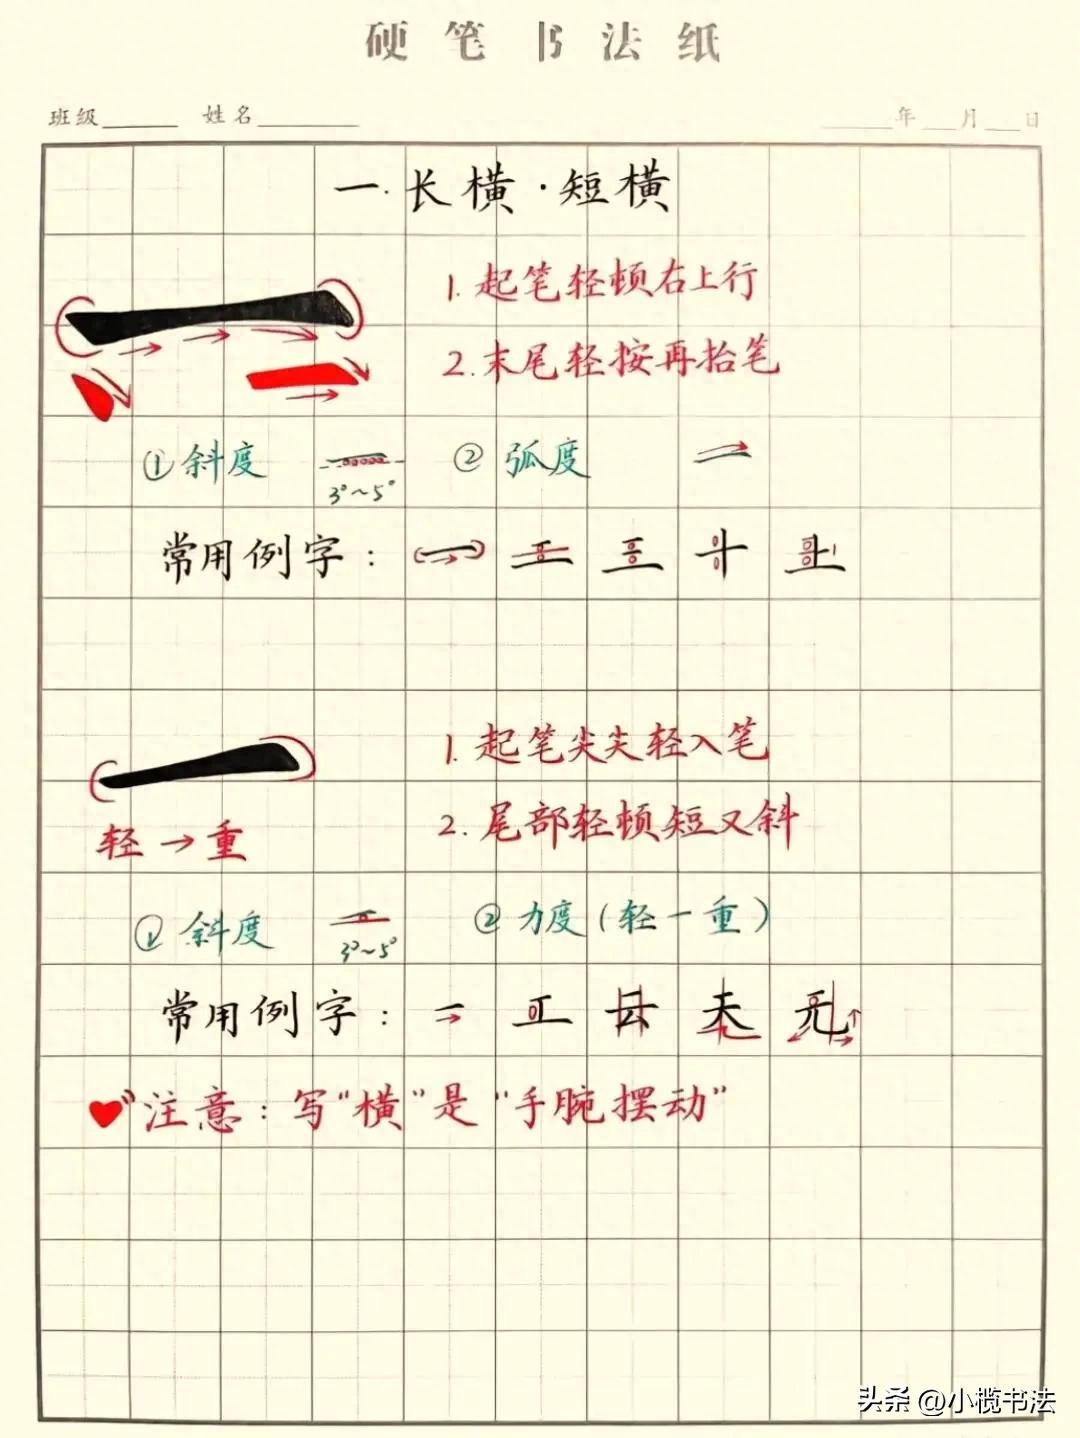 硬笔书法纸
班级 姓名 年 月 日
一.长横·短横
1.起笔轻顿右上行
2.末尾轻按再抬笔
①斜度 3°~5° ②弧度
常用例字：一 二 三 十 上
1.起笔尖尖轻入笔
2.尾部轻顿短又斜
轻→重
①斜度 3°~5° ②力度(轻一重)
常用例字：二 工 云 天 无
注意：写"横"是"手腕摆动"
头条 @小榄书法